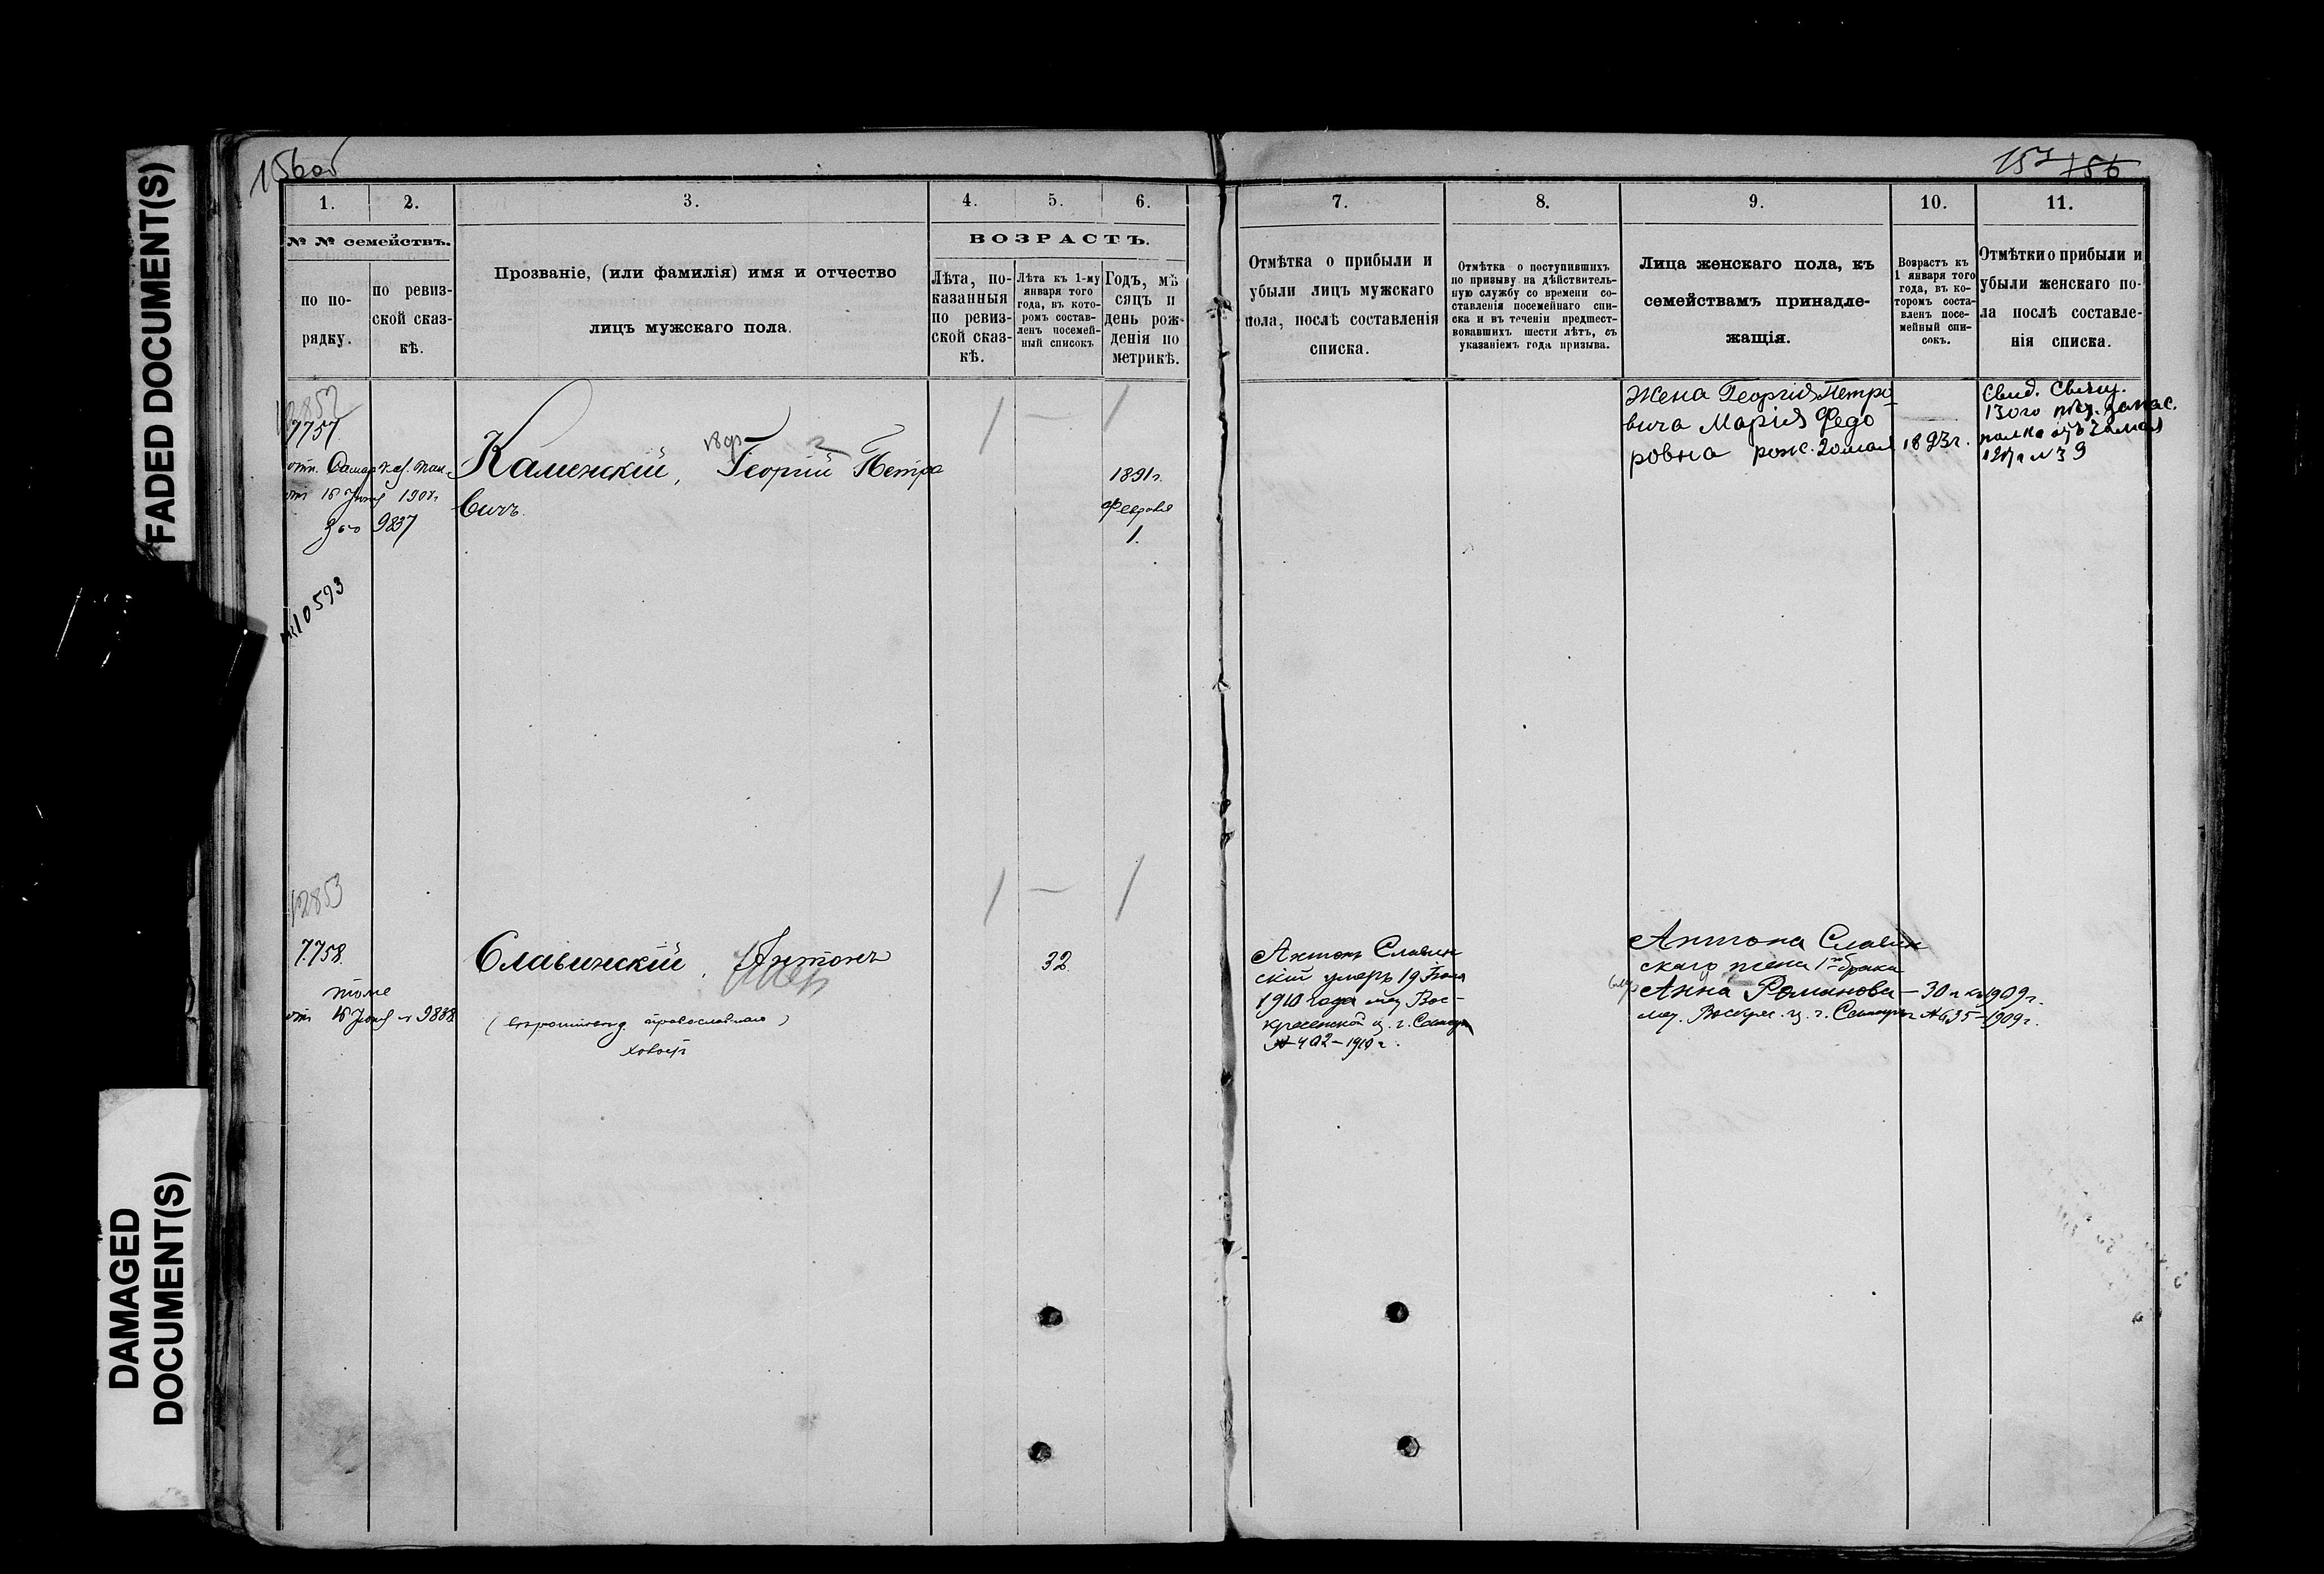 156об
157 156
FADED DOCUMENT(S)
DAMAGED
DOCUMENT(S)
1. 2. 3. 4. 5. 6.
№ № семействъ.
по по-
рядку.
по ревиз-
ской сказ-
кѣ.
Прозваніе, (или фамилія) имя и отчество
лицъ мужскаго пола.
ВОЗРАСТЪ.
Лѣта, по-
казанныя
по ревиз-
ской сказ-
кѣ.
Лѣта къ 1-му
января того
года, въ кото-
ромъ состав-
ленъ посемей-
ный списокъ
Годъ, мѣ-
сяцъ и
день рож-
денія по
метрикѣ.
7. 8. 9. 10. 11.
Отмѣтка о прибыли и
убыли лицъ мужскаго
пола, послѣ составленія
списка.
Отмѣтка о поступившихъ
по призыву на дѣйствитель-
ную службу со времени со-
ставленія посемейнаго спи-
ска и въ теченіи предшест-
вовавшихъ шести лѣтъ, съ
указаніемъ года призыва.
Лица женскаго пола, къ
семействамъ принадле-
жащія.
Возрастъ къ
1 января того
года, въ ко-
торомъ соста-
вленъ посе-
мейный спи-
сокъ.
Отмѣтки о прибыли и
убыли женскаго по-
ла послѣ составле-
нія списка.
12852
7757
отн. Самар. каз. пал.
от 16 Іюня 1907г
за № 9837
10593
Каменскій, Георгій Петро
вичъ.
1891г.
Февраля
1.
Жена Георгія Петро
вича Марія Федо
ровна рожс. 20 мая 1893г.
Свид. Свящ.
130го пѣх.
полка
№ 39
12853
7758.
тоже
от 16 Іюня № 9838
Славинскій, Антонъ
умеръ
православная
32
Антонъ Славин
скій умеръ 19 Іюля
1910 года мет Вос-
кресенской ц. г. Самары
№ 402 – 1910 г.
Антона Славин
скаго жена 1го брака
Анна Романова – 30 л къ 1909г.
мет. Воскрес. ц. г. Самары № 635 – 1909 г.